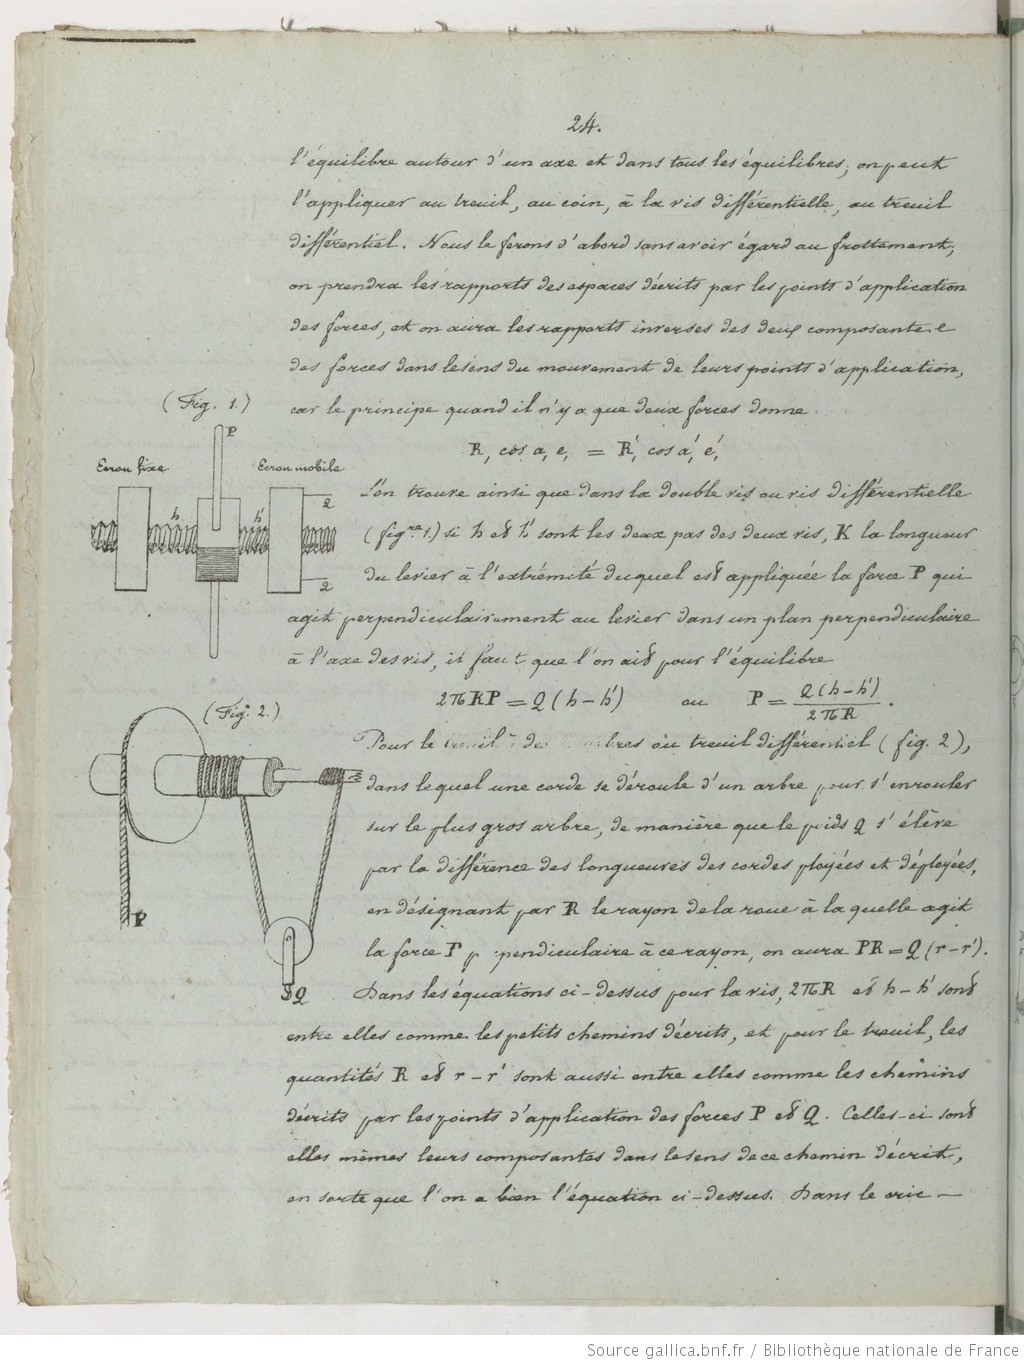 24.
l'équilibre autour d'un axe et dans tous les équilibres; on peut
l'appliquer au treuil, au coin, à la vis différentielle, au treuil
différentiel. Nous le ferons d'abord sans avoir égard au frottement;
on prendra les rapports des espaces décrits par les points d'application
des forces, et on aura les rapports inverses des deux composantes
des forces dans le sens du mouvement de leurs points d'application,
car le principe quand il n'y a que deux forces donne
R, cos a, e, = R', cos a', e',
(Fig. 1.)
P
Ecrou fixe
Ecrou mobile
h
h'
Q
Q
L'on trouve ainsi que dans la double vis ou vis différentielle
(fig.re 1.) si h et h' sont les deux pas des deux vis, K la longueur
du levier à l'extrémité duquel est appliquée la force P qui
agit perpendiculairement au levier dans un plan perpendiculaire
à l'axe des vis, il faut que l'on ait pour l'équilibre
2πKP = Q (h - h') ou P = Q (h - h') / 2πR .
(Fig. 2.)
P
Q
Pour le treuil à de arbres ou treuil différentiel (fig. 2),
dans lequel une corde se déroule d'un arbre pour s'enrouler
sur le plus gros arbre, de manière que le poids Q s'élève
par la différence des longueures des cordes ployées et déployées,
en désignant par R le rayon de la roue à la quelle agit
la force P perpendiculaire à ce rayon, on aura PR = Q (r - r').
Dans les équations ci-dessus pour la vis, 2πR et h - h' sont
entre elles comme les petits chemins décrits, et pour le treuil, les
quantités R et r - r' sont aussi entre elles comme les chemins
décrits par les points d'application des forces P et Q. Celles-ci sont
elles mêmes leurs composantes dans le sens de ce chemin décrit,
en sorte que l'on a bien l'équation ci-dessus. Dans le cric -
Source gallica.bnf.fr / Bibliothèque nationale de France